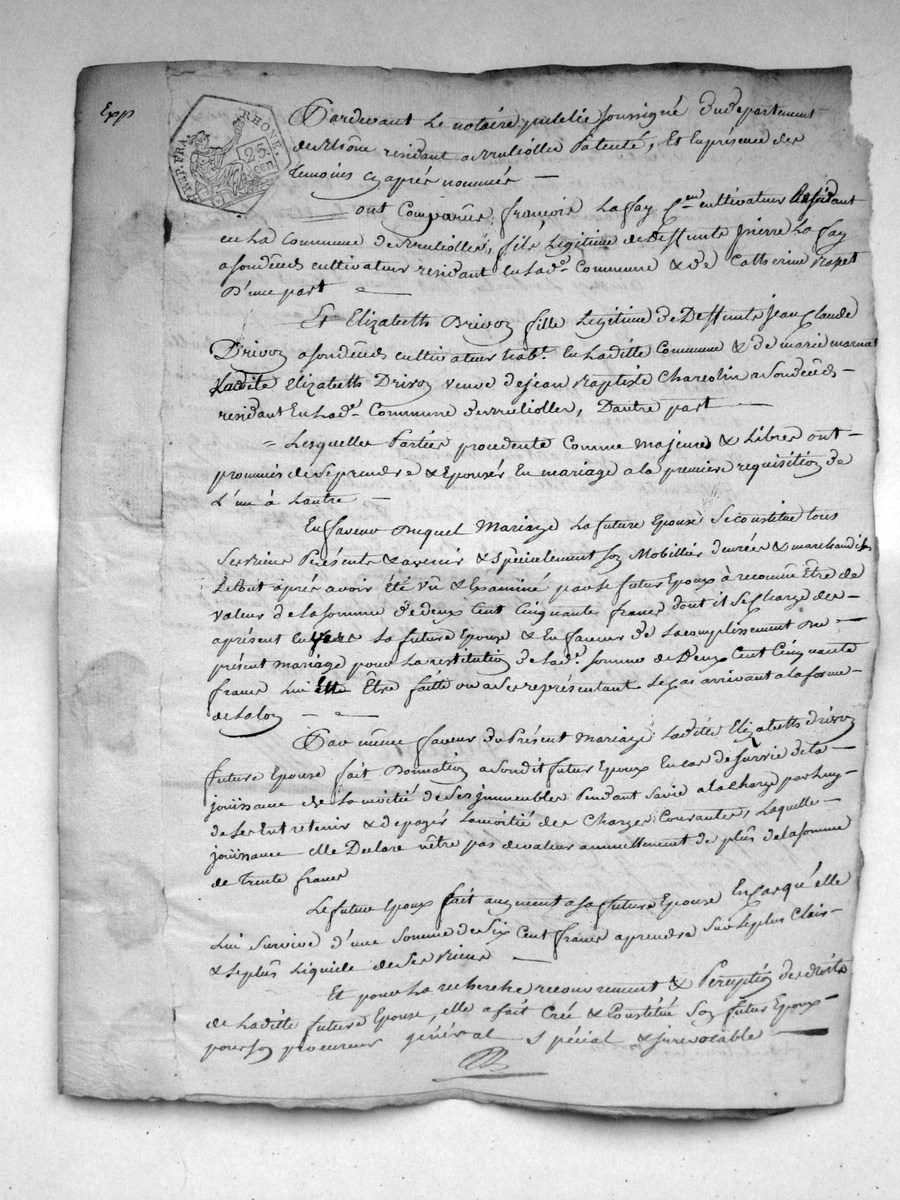 Exp
REP. FRA.
RHONE.
25
CEN
Pardevant Le notaire publicq soussigné du departement
du Rhône residant a Brulliolles Patenté, Et En présence des
temoins cy après nommés —
ont Comparus, françois Laffay C.en cultivateur Residant
en La Commune de Brulliolles, fils Legitime de Deffunts pierre Laffay
a son décès cultivateur residant En Lad.e Commune & de Catherine
D'une part —
Et Elizabeth Drivon fille Legitime de Deffunts Jean Claude
Drivon a son décès cultivateur hab.t En Ladite Commune & de marie
Ladite Elizabeth Drivon veuve de jean Baptiste a Son décès —
residant En Lad.e Commune de Brulliolles, Dautre part —
= Lesquelles Parties procedente Comme majeures & Libres ont —
promis de Se prendre & Epouser En mariage a la premiere requisition de
L'un à Lautre —
En faveur Duquel Mariage La future Epouse Se constitue tous
Ses Biens Présents & avenir & Spécialement son Mobillier denrées & marchandises
Le tout après avoir été vû & Examiné par le futur Epoux à reconnû Être de
valeur de La somme de deux Cent Cinquante francs dont il Se Charge des —
apresent La future Epouse & En faveur de Lacomplissement du —
présent mariage pour La restitution de Lad.e Somme de Deux Cent Cinquante
francs Lui Être faitte ou a Ses représentant Le Cas arrivant a la forme —
de La Loy —
Par même faveur du Présent Mariage Ladite Elizabeth drivon
future Epouse fait Donnation a Son dit futur Epoux En cas de Survie de la —
jouissance de La moitié de Ses immeubles Pendant Sa vie a la charge par Luy
de Les Entretenir & de payer La moitié des Charges Courantes, Laquelle —
jouissance elle Declare n'être pas de valeur annuellement de plus de La somme
de Trente francs
Le futur Epoux fait augment a Sa future Epouse En Cas qu'elle
Lui Survive d'une Somme de Six Cent francs a prendre Sur Le plus Clair —
& Le plus Liquide de Ses Biens —
Et pour La recherche recouvrement & Perception des droits
de Ladite future Epouse, elle a fait Créé & Constitué Son futur Epoux —
pour Son procureur général Spécial & irrévocable —